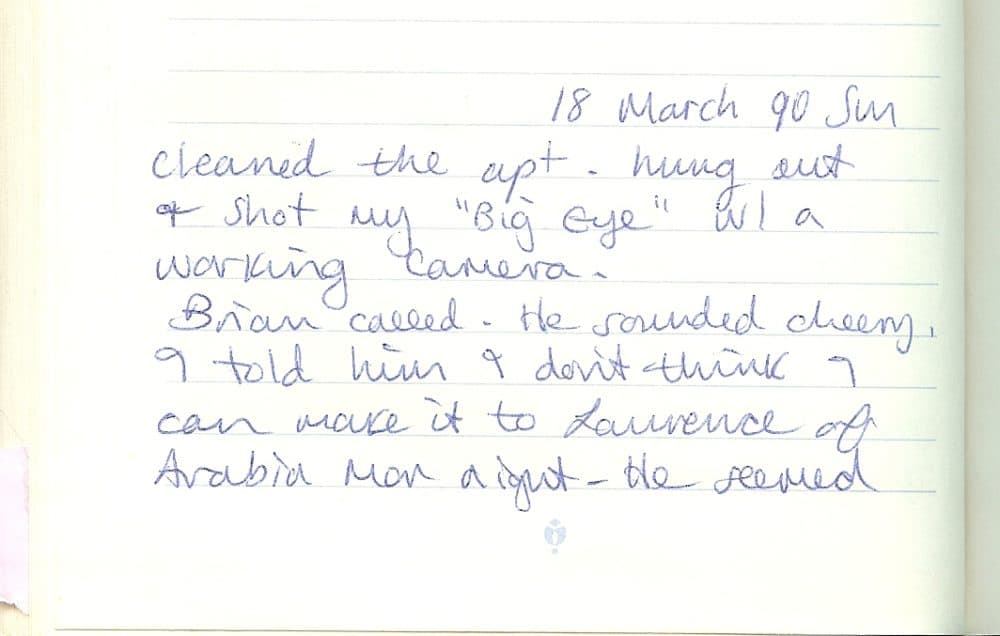 18 March 90 Sun
cleaned the apt. hung out
& shot my "Big Eye" w/ a
working camera.
Brian called. He sounded cheery.
I told him I don't think I
can make it to Laurence of
Arabia Mon night - He seemed